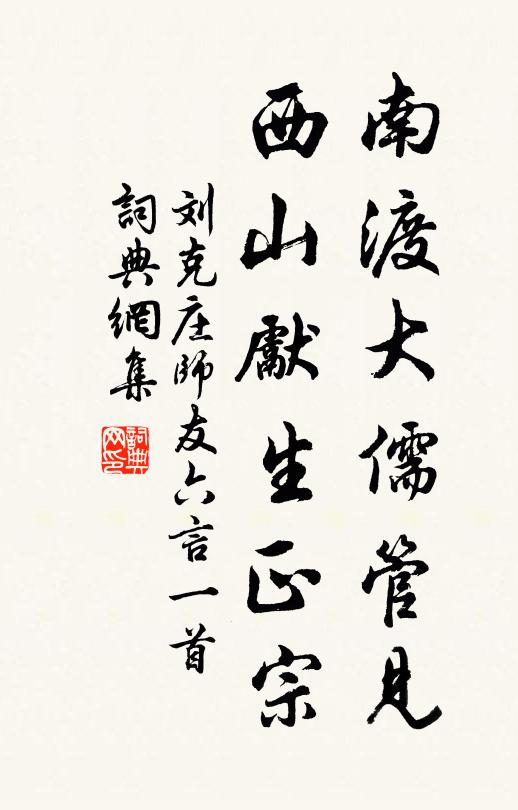 南渡大儒管見
西山獻生正宗
刘克庄師友六言一首
詞典網集
詞典网印